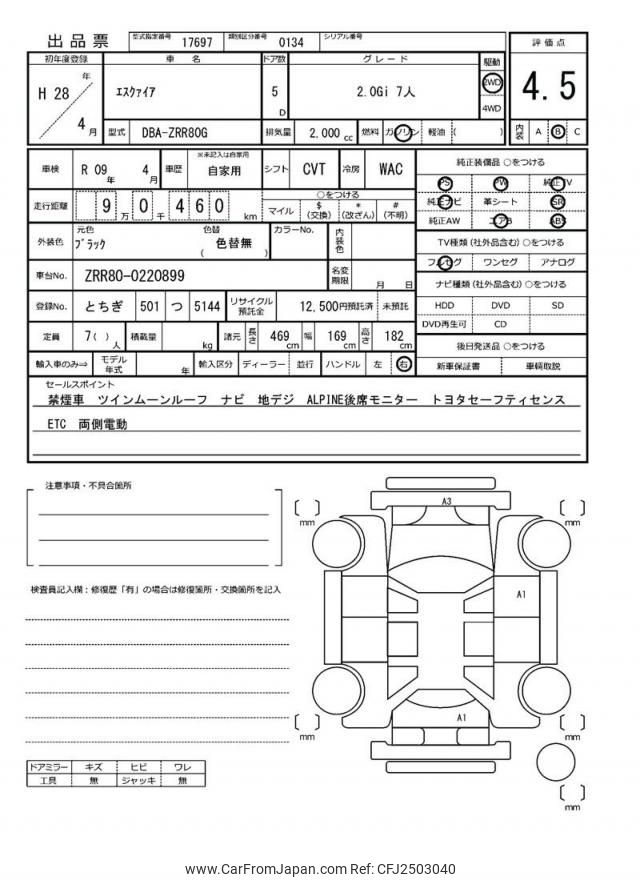 出品票
型式指定番号 17697 類別区分番号 0134 シリアル番号
初年度登録 車名 ドア数 グレード 駆動 評価点
H 28 年 4 月
エスクァイア 5 D 2.0Gi 7人 2WD 4WD 4.5
型式 DBA-ZRR80G 排気量 2,000 cc 燃料 ガソリン 軽油 ( ) 内装 A B C
車検 R 09 年 4 月 車歴 ※未記入は自家用 自家用 シフト CVT 冷房 WAC
走行距離 9 万 0 千 460 km
○をつける
マイル $ (交換) * (改ざん) # (不明)
外装色 元色 ブラック 色替 色替無 ( ) カラーNo. 内装色
車台No. ZRR80-0220899 名変期限 月 日
登録No. とちぎ 501 つ 5144 リサイクル預託金 12,500円預託済 未預託
定員 7( )人 積載量 kg 諸元 長さ 469 cm 幅 169 cm 高さ 182 cm
輸入車のみ⇒ モデル年式 年 輸入区分 ディーラー 並行 ハンドル 左 右
純正装備品 ○をつける
PS PW 純正TV
純正ナビ 革シート SR
純正AW エアB ABS
TV種類 (社外品含む) ○をつける
フルセグ ワンセグ アナログ
ナビ種類 (社外品含む) ○をつける
HDD DVD SD
DVD再生可 CD
後日発送品 ○をつける
新車保証書 車輌取説
セールスポイント
禁煙車 ツインムーンルーフ ナビ 地デジ ALPINE後席モニター トヨタセーフティセンス
ETC 両側電動
注意事項・不具合箇所
検査員記入欄：修復歴「有」の場合は修復箇所・交換箇所を記入
ドアミラー キズ ヒビ ワレ
工具 無 ジャッキ 無
[ ] mm
[ ] mm
A3
A1
A1
[ ] mm
[ ] mm
[ ] mm
www.CarFromJapan.com Ref: CFJ2503040